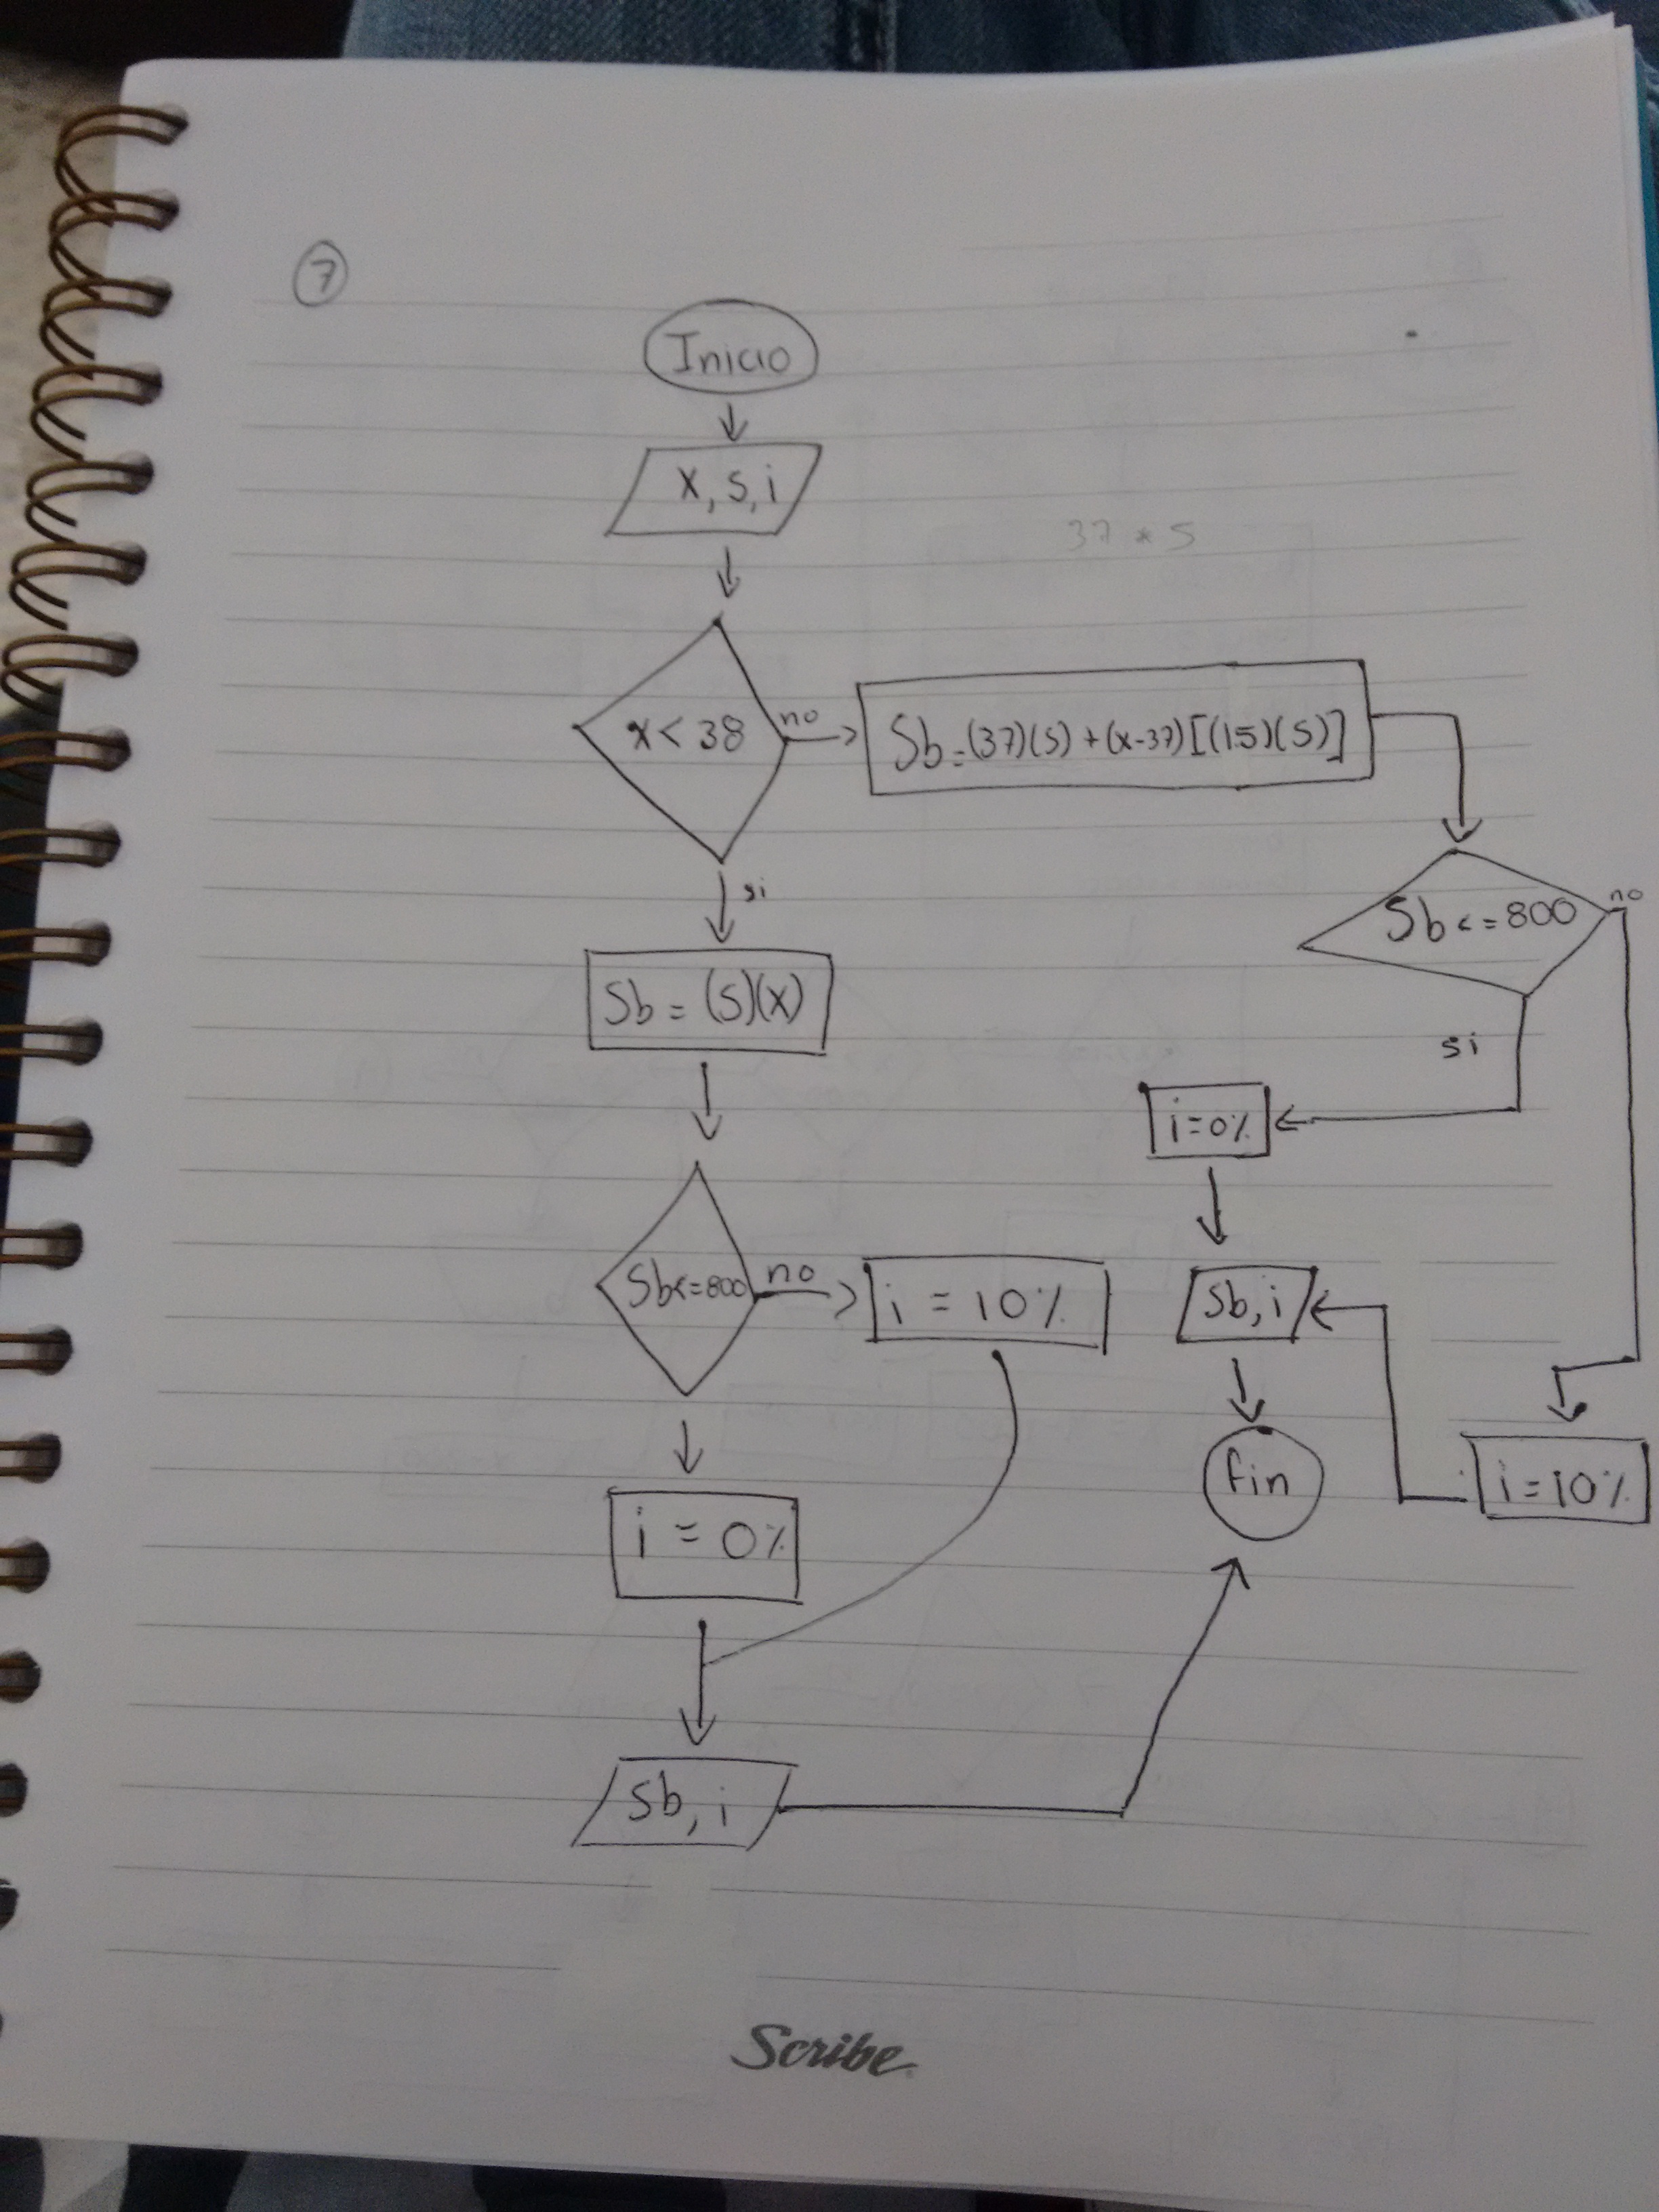 7
Inicio
x, s, i
37 * S
x < 38
no
Sb = (37)(s) + (x-37)[(1.5)(s)]
si
Sb <= 800
no
Sb = (s)(x)
si
i = 0%
Sb <= 800
no
i = 10%
Sb, i
fin
i = 10%
i = 0%
Sb, i
Scribe